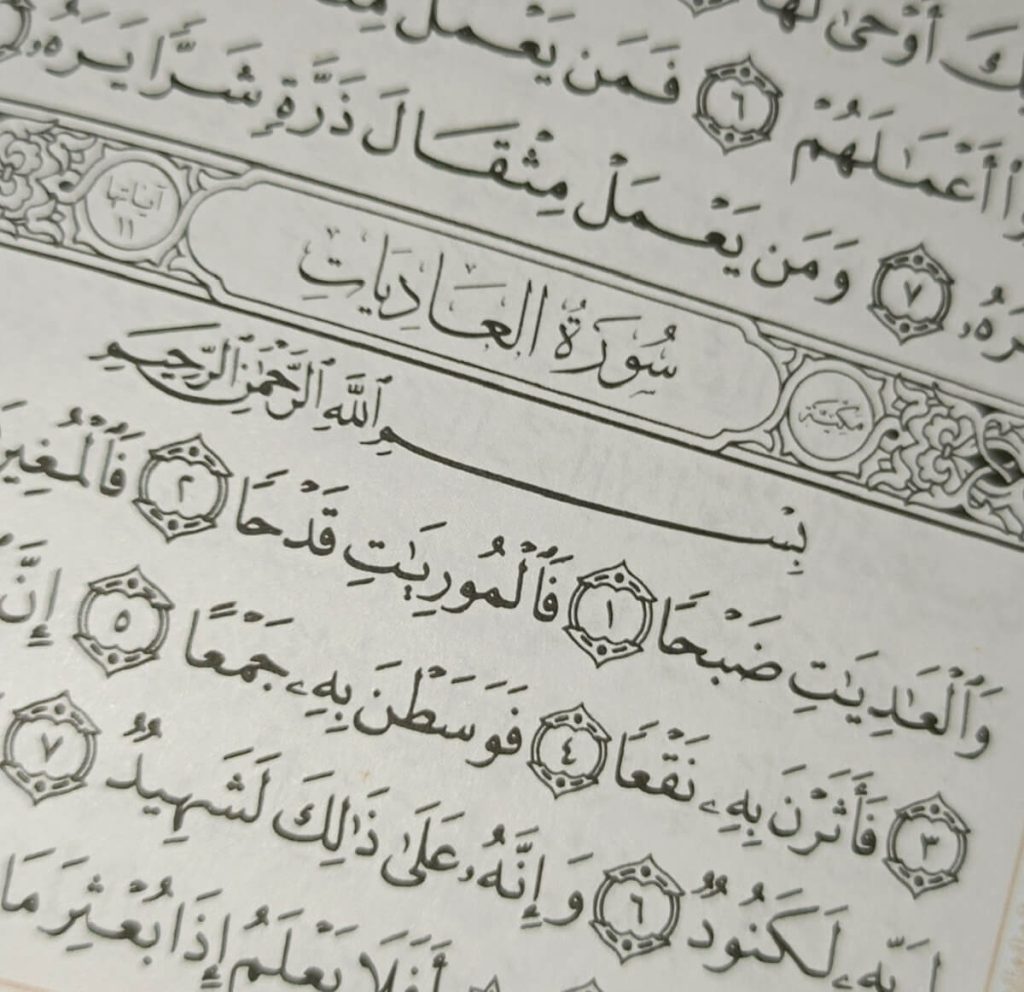 أَوْحَىٰ لَهَا
أَعْمَٰلَهُمْ ٦ فَمَن يَعْمَلْ
رَهُۥ ٧ وَمَن يَعْمَلْ مِثْقَالَ ذَرَّةٍ شَرًّا يَرَهُۥ
مكية سُورَةُ العَادِيَاتِ آياتها ١١
بِسْمِ ٱللَّهِ ٱلرَّحْمَٰنِ ٱلرَّحِيمِ
وَٱلْعَٰدِيَٰتِ ضَبْحًا ١ فَٱلْمُورِيَٰتِ قَدْحًا ٢ فَٱلْمُغِيرَ
٣ فَأَثَرْنَ بِهِۦ نَقْعًا ٤ فَوَسَطْنَ بِهِۦ جَمْعًا ٥ إِنَّ
لِرَبِّهِۦ لَكَنُودٌ ٦ وَإِنَّهُۥ عَلَىٰ ذَٰلِكَ لَشَهِيدٌ ٧
أَفَلَا يَعْلَمُ إِذَا بُعْثِرَ مَا